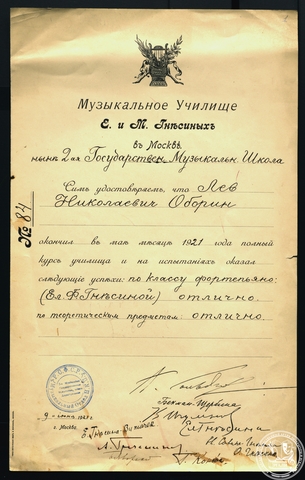 Музыкальное Училище
Е. и М. Гнѣсиныхъ
въ Москвѣ.
нынѣ 2-ая Государствен. Музыкальн. Школа
Симъ удостовѣряемъ, что Лев
Николаевич Оборин
№ 84
окончил в маѣ мѣсяцѣ 1921 года полный
курсъ училища и на испытаніяхъ оказал
слѣдующіе успѣхи: по классу фортепьяно:
(Ел. Ф. Гнѣсиной) отлично.
по теоретическим предметам: отлично.
г. Москва.
Бекман-Щербина
Ел. Гнѣсина
Е. Гнѣсина-Витачек